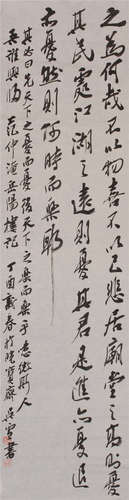 之为何哉不以物喜不以己悲居廟堂之高則憂
其民處江湖之遠則憂其君是進亦憂退
亦憂然則何時而樂耶
其必曰先天下之憂而憂後天下之樂而樂乎意微斯人
吾誰與歸 范仲淹岳陽樓記 丁酉